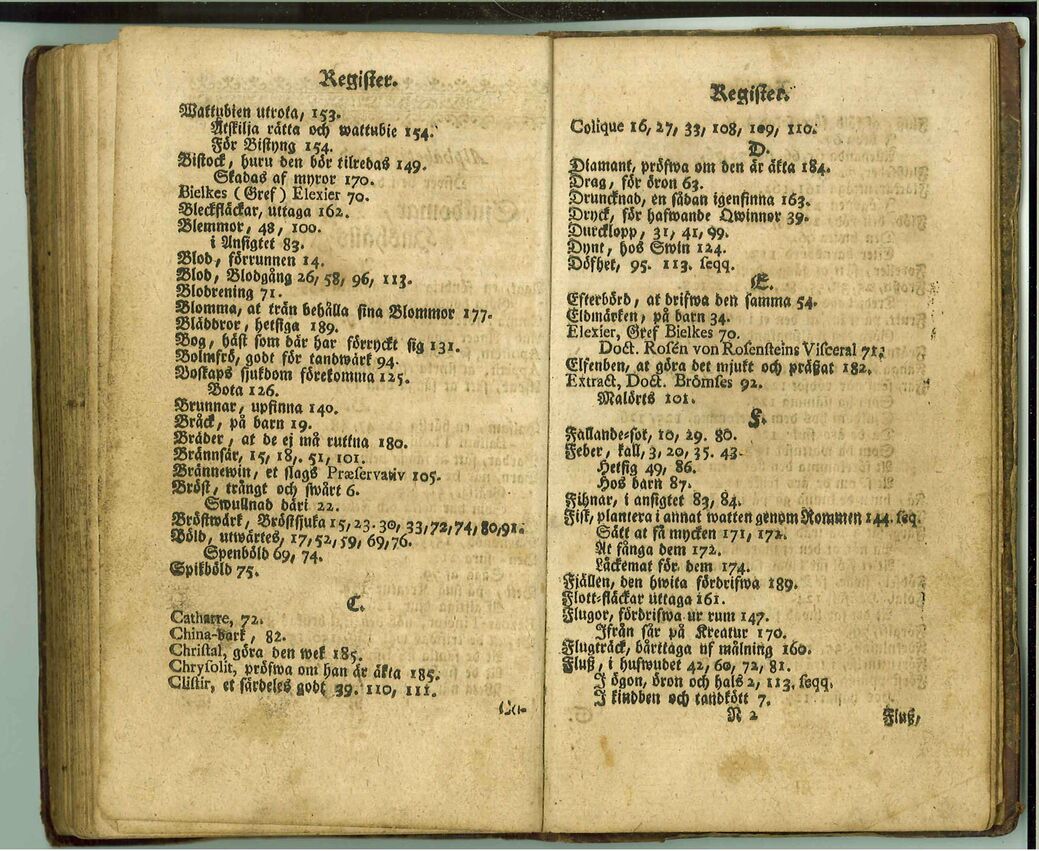 Register.
Wattubien utrota, 153.
Åtskilja rätta och wattubie 154.
För Bistyng 154.
Bistock, huru den bör tilredas 149.
Skadas af myror 170.
Bielkes (Gref) Elexier 70.
Bleckfläckar, uttaga 162.
Blemmor, 48, 100.
i Ansigtet 83.
Blod, förrunnen 14.
Blod, Blodgång 26, 58, 96, 113.
Blodrening 71.
Blomma, at trän behålla sina Blommor 177.
Bläddror, hetsiga 189.
Bog, häst som där har förryckt sig 131.
Bolmfrö, godt för tandwärk 94.
Boskaps sjukdom förekomma 125.
Bota 126.
Brunnar, upfinna 140.
Bråck, på barn 19.
Bräder, at de ej må ruttna 180.
Brännsår, 15, 18, 51, 101.
Brännewin, et slags Præservativ 105.
Bröst, trångt och swårt 6.
Swullnad däri 22.
Bröstwärk, Bröstsjuka 15, 23. 30, 33, 72, 74, 80, 91.
Böld, utwärtes, 17, 52, 59, 69, 76.
Spenböld 69, 74.
Spikböld 75.
C.
Catharre, 72.
China-bark, 82.
Christal, göra den wek 185.
Chrysolit, pröfwa om han är äkta 185.
Clistir, et särdeles godt 39. 110, 111.
Register.
Colique 16, 27, 33, 108, 109, 110.
D.
Diamant, pröfwa om den är äkta 184.
Drag, för öron 63.
Druncknad, en sådan igenfinna 163.
Dryck, för hafwande Qwinnor 39.
Durcklopp, 31, 41, 99.
Dynt, hos Swin 124.
Döfhet, 95. 113. seqq.
E.
Efterbörd, at drifwa den samma 54.
Eldmärken, på barn 34.
Elexier, Gref Bielkes 70.
Doct. Rosén von Rosensteins Visceral 71.
Elfenben, at göra det mjukt och präßat 182.
Extract, Doct. Brömses 92.
Malörts 101.
F.
Fallande-sot, 10, 29. 80.
Feber, kall, 3, 20, 35. 43.
Hetsig 49, 86.
Hos barn 87.
Fihnar, i ansigtet 83, 84.
Fisk, plantera i annat watten genom Rommen 144. seq.
Sätt at få mycken 171, 172.
At fånga dem 172.
Läckemat för dem 174.
Fjällen, den hwita fördrifwa 189.
Flott-fläckar uttaga 161.
Flugor, fördrifwa ur rum 147.
Ifrån sår på Kreatur 170.
Flugträck, bårttaga uf målning 160.
Fluß, i hufwudet 42, 60, 72, 81.
I ögon, öron och hals 2, 113. seqq.
I kindben och tandkött 7.
N 2
Fluß,